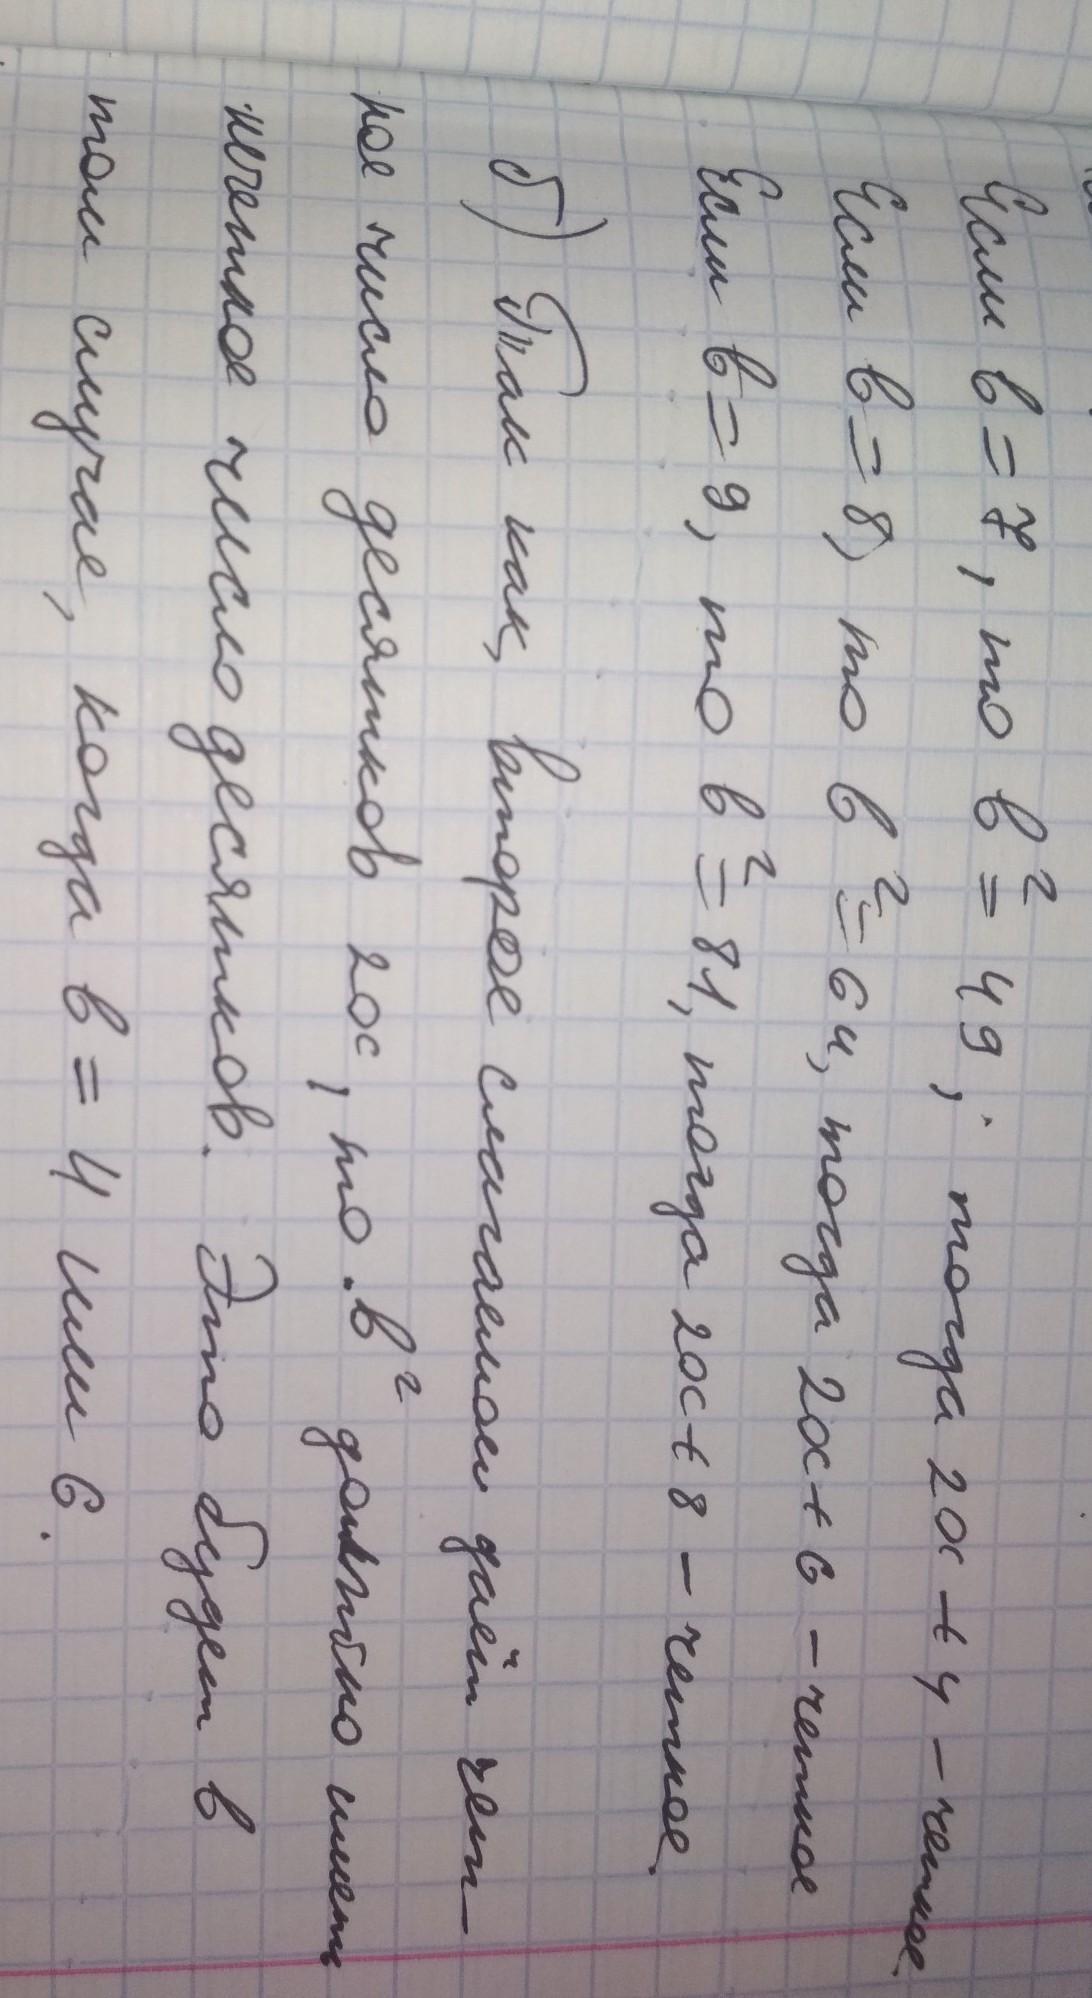 Если в = 7, то в² = 49, тогда 2ос + 4 – четное
Если в = 8, то в² = 64, тогда 2ос + 6 – четное
Если в = 9, то в² = 81, тогда 2ос + 8 – четное.
б) Так как, второе слагаемое даёт чет-
ное число десятков 2ос, то в² должно иметь
нечетное число десятков. Это будет в
том случае, когда в = 4 или 6.